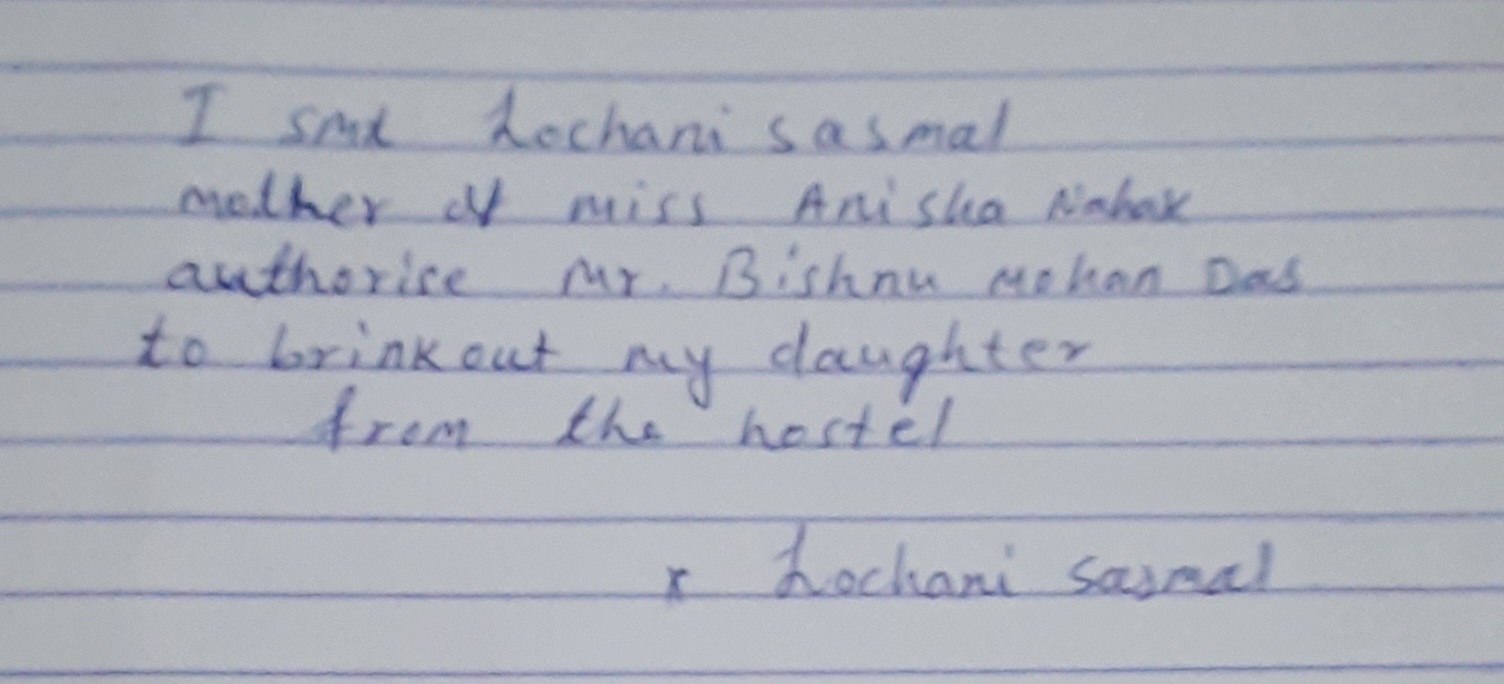 I smt Lochani sasmal
mother of miss Anisha Nahak
authorise Mr. Bishnu Mohan Das
to brink out my daughter
from the hostel
x Lochani sasmal